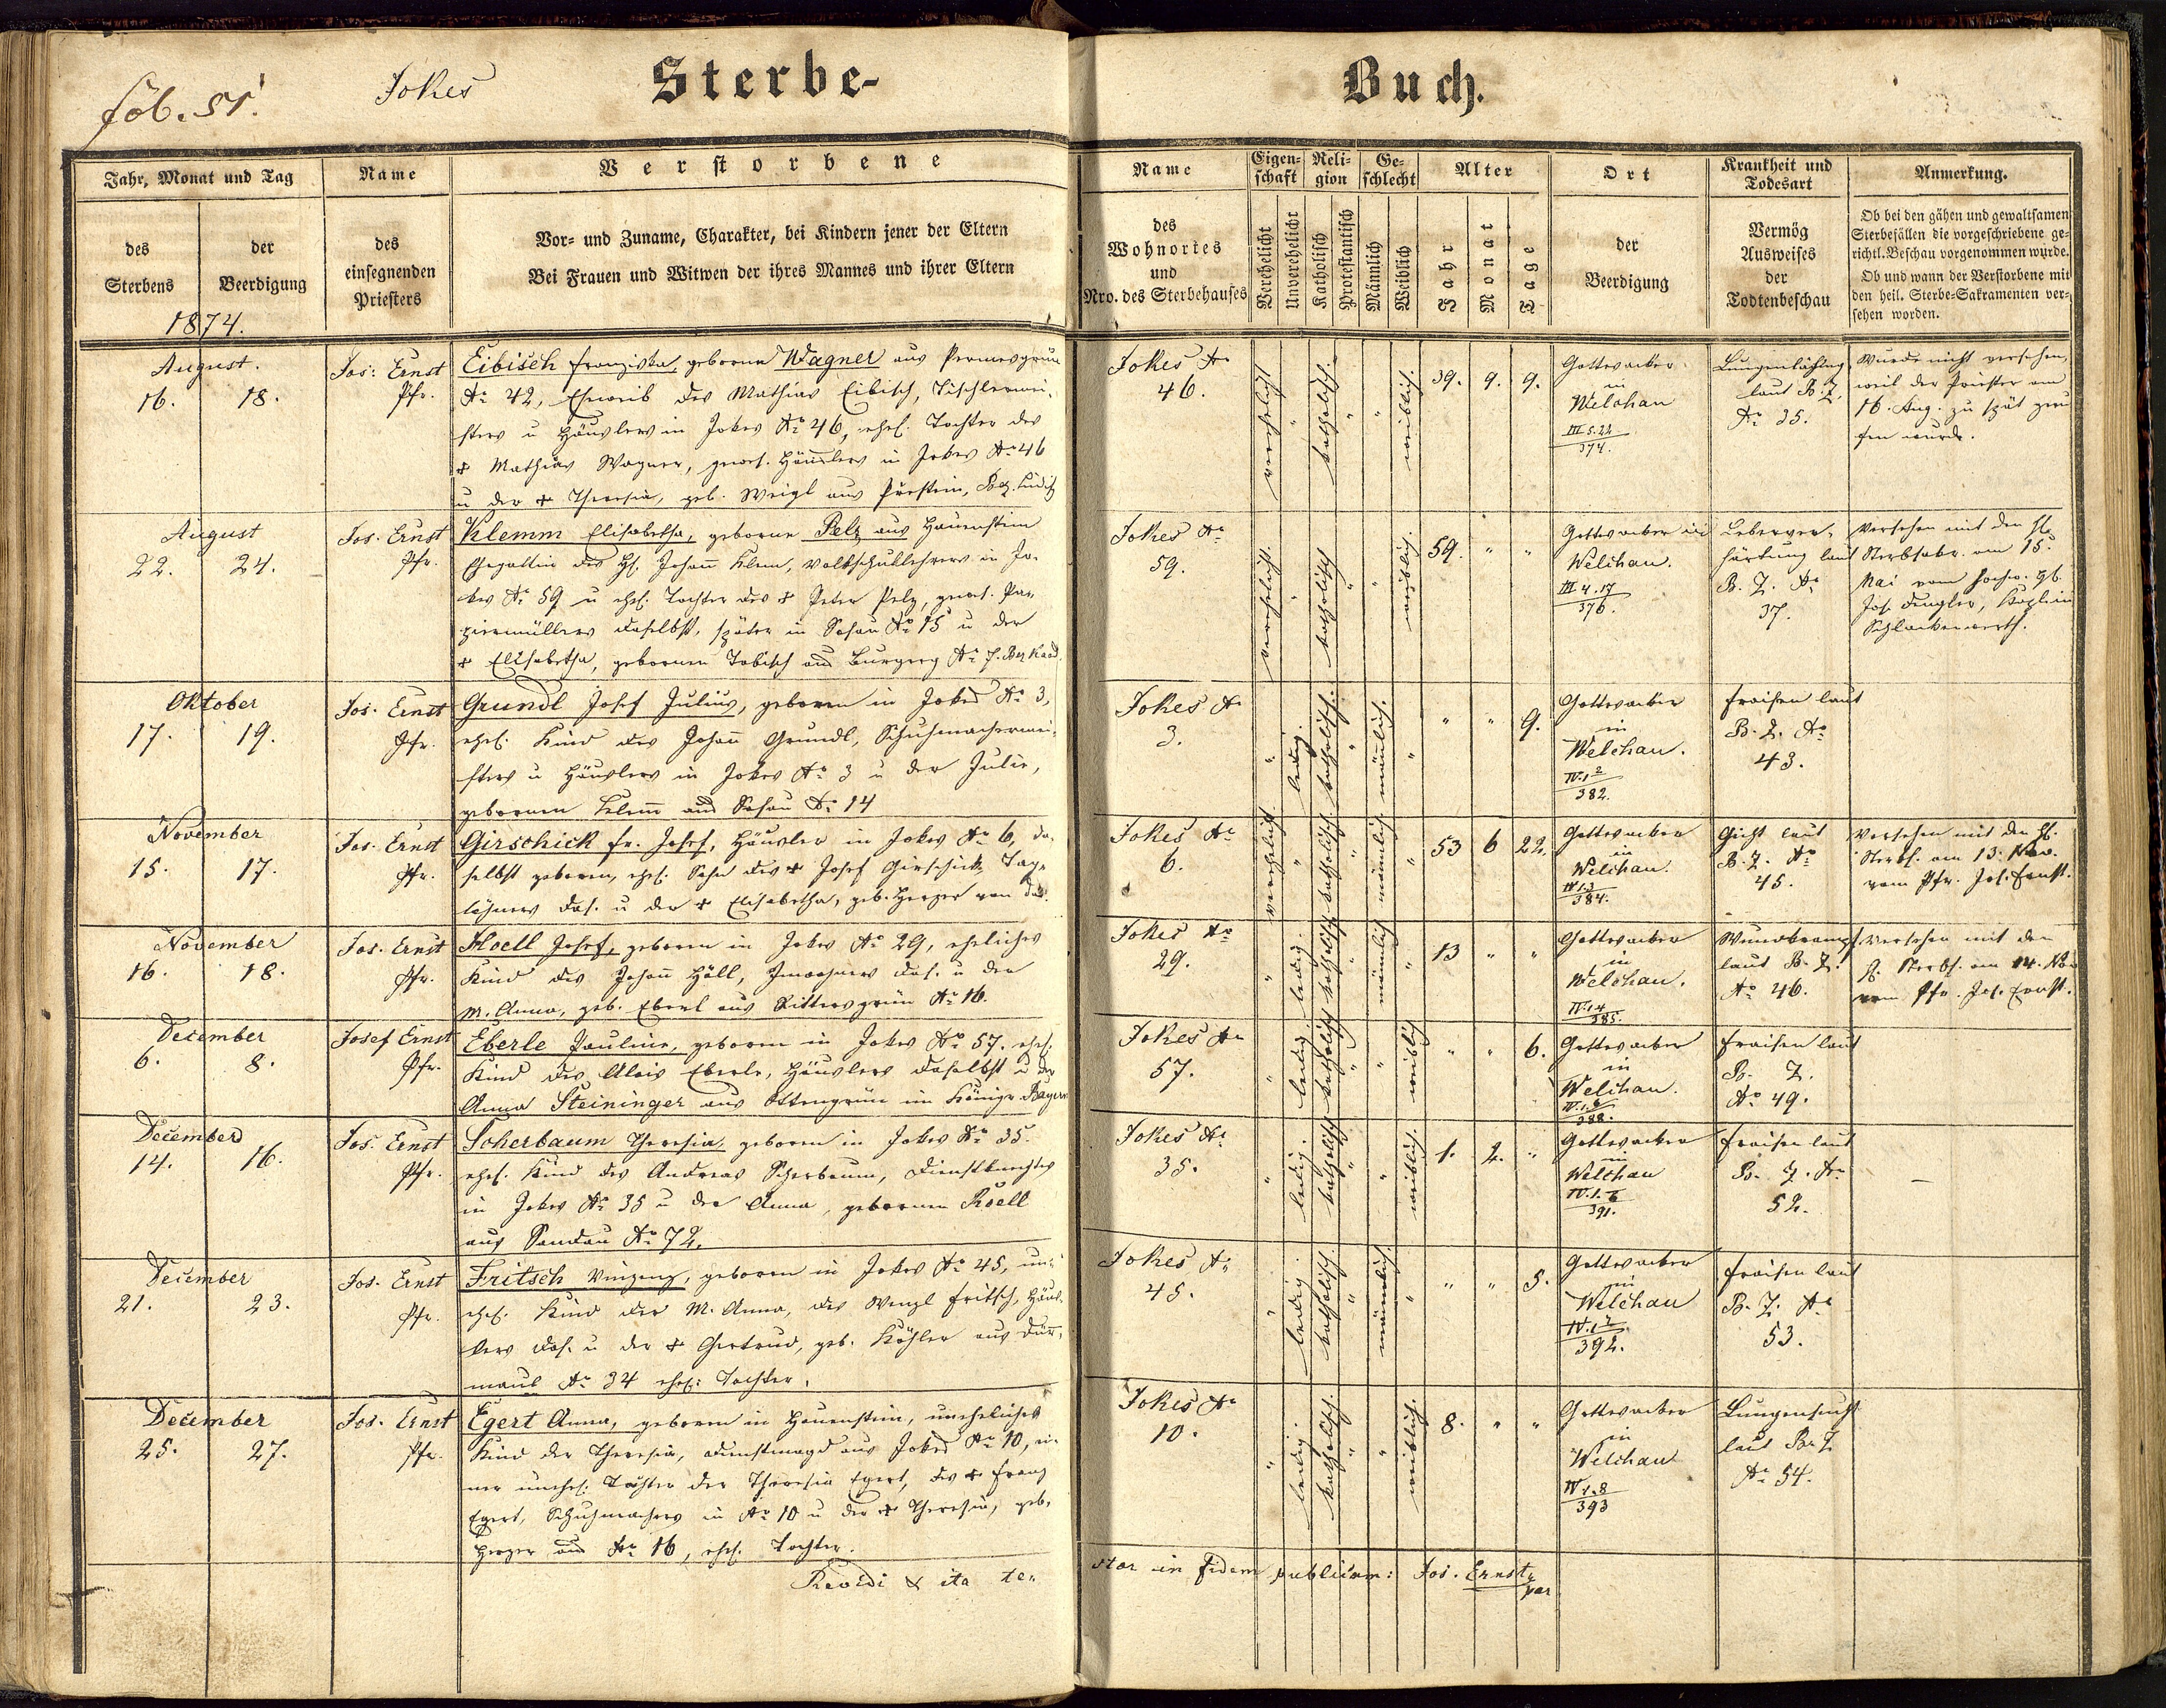 fol. 51.
Jokes
Sterbe-
Buch.
Jahr, Monat und Tag
des Sterbens
der Beerdigung
1874.
Name
des
einsegnenden
Priesters
Verstorbene
Vor- und Zuname, Charakter, bei Kindern jener der Eltern
Bei Frauen und Witwen der ihres Mannes und ihrer Eltern
Name
des
Wohnortes
und
Nro. des Sterbehauses
Eigenschaft
Verehelicht
Unverehelicht
Religion
Katholisch
Protestantisch
Geschlecht
Männlich
Weiblich
Alter
Jahr
Monat
Tage
Ort
der
Beerdigung
Krankheit und
Todesart
Vermög
Ausweises
der
Todtenbeschau
Anmerkung.
Ob bei den gähen und gewaltsamen
Sterbefällen die vorgeschriebene ge-
richtl. Beschau vorgenommen wurde.
Ob und wann der Verstorbene mit
den heil. Sterbe-Sakramenten ver-
sehen worden.
August.
16. 18.
Jos: Ernst
Pfr.
Eibisch Franziska, geborne Wagner aus Permesgrün
No 42, Eheweib des Mathias Eibisch, Tischlermei-
sters u Häuslers in Jokes No 46, ehel. Tochter des
+ Mathias Wagner, gewes. Häuslers in Jokes No 46
u der + Theresia, geb. Weigl aus Bez. Luditz
Jokes No
46.
verehelicht
"
katholisch.
"
"
weiblich.
39. 9. 9.
Gottesacker
in
Welchau
III 5.22
374.
laut B. Z.
No 35.
Wurde nicht versehen,
weil der Priester am
16. Aug. zu spät geru
fen wurde.
August
22. 24.
Jos. Ernst
Pfr.
Klemm Elisabetha, geborne Pelz aus Hauenstein
Ehegattin des H. Johann Klem, Volksschullehrers in Jo-
kes No 59 u ehel. Tochter des + Peter Pelz, gewes. Pa-
piermüllers daselbst, später in Sosau No 15 u der
+ Elisabetha, gebornen Tobisch aus No 7. Bez Kaad.
Jokes No
59.
verehelicht.
"
katholisch
"
"
weiblich.
59. " "
Gottesacker in
Welchau.
III 4.17
376.
Leberver-
härtung laut
B. Z. No
37.
Versehen mit den hl.
Sterbsakr. am 15.
Mai vom hochw. H.
Jos. Kaplan
Schlackenwerth.
Oktober
17. 19.
Jos. Ernst
Pfr.
Grundl Josef Julius, geboren in Jokes No 3,
ehel. Kind des Johann Grundl, Schuhmachermei-
sters u Häuslers in Jokes No 3 u der Julie,
gebornen Klem aus Sosau No 14
Jokes No
3.
"
ledig.
katholisch.
"
männlich.
"
" " 9.
Gottesacker
in
Welchau.
IV.1 2
382.
Fraisen laut
B. Z. No
43.
November
15. 17.
Jos. Ernst
Pfr.
Girschick Fr. Josef, Häusler in Jokes No 6, da-
selbst geboren, ehel. Sohn des + Josef Girschick, Tag-
löhners das. u der + Elisabetha, geb. Herzer von das.
Jokes No
6.
verehelicht.
"
katholisch.
"
männlich
"
53 6 22.
Gottesacker
in
Welchau.
IV 1.3
384.
Gicht laut
B. Z. No
45.
Versehen mit den hl.
Sterbs. am 13. Nov.
vom Pfr. Jos. Ernst.
November
16. 18.
Jos. Ernst
Pfr.
Hoell Josef, geboren in Jokes No 29, eheliches
Kind des Johann Höll, Inwohners das. u der
M. Anna, geb. Eberl aus Rittersgrün No 16.
Jokes No
29.
"
ledig.
katholisch
"
männlich
"
13 " "
Gottesacker
in
Welchau.
IV.1 4
385.
Wundkrampf
laut B. Z.
No 46.
Versehen mit den
h. Sterbs. am 14. Nov
vom Pfr. Jos. Ernst.
December
6. 8.
Josef Ernst
Pfr.
Eberle Pauline, geboren in Jokes No 57. ehel.
Kind des Alois Eberle, Häuslers daselbst u der
Anna Steininger aus Ottengrün im Königr Bayern
Jokes No
57.
"
ledig.
katholisch
"
"
weiblich
" " 6.
Gottesacker
in
Welchau.
IV.1.6
388.
Fraisen laut
B. Z.
No 49.
December
14. 16.
Jos. Ernst
Pfr.
Scherbaum Theresia, geboren in Jokes No 35.
ehel. Kind des Andreas Scherbaum, Dienstknechtes
in Jokes No 35 u der Anna, gebornen Kroell
aus Sandau No 72.
Jokes No
35.
"
ledig.
katholisch
"
"
weiblich.
1. 2. "
Gottesacker
in
Welchau
IV.1.6
391.
Fraisen laut
B. Z. No
52.
–
December
21. 23.
Jos. Ernst
Pfr.
Fritsch Vinzenz, geboren in Jokes No 45, un-
ehel. Kind der M. Anna, des Wenzl Fritsch, Häus-
lers das. u der + Gertrud, geb. Köhler aus Dür-
maul No 34 ehel. Tochter.
Jokes No
45.
"
ledig.
katholisch.
"
männlich.
"
" " 5.
Gottesacker
in
Welchau
IV.1 7
392.
Fraisen laut
B. Z. No
53.
December
25. 27.
Jos. Ernst
Pfr.
Egert Anna, geboren in Hauenstein, uneheliches
Kind der Theresia, Dienstmagd aus Jokes No 10, ei-
ner unehel. Tochter der Theresia Egert, des + Franz
Egert, Schuhmachers in No 10 u der + Theresia, geb.
Herzer aus No 16, ehel. Tochter.
Jokes No
10.
"
ledig.
katholisch.
"
"
weiblich.
8. " "
Gottesacker
in
Welchau
IV 1.8
393
Lungensucht
laut B. Z
No 54.
Revidi & ita te-
stor in fidem publicam: Jos. Ernst,
par